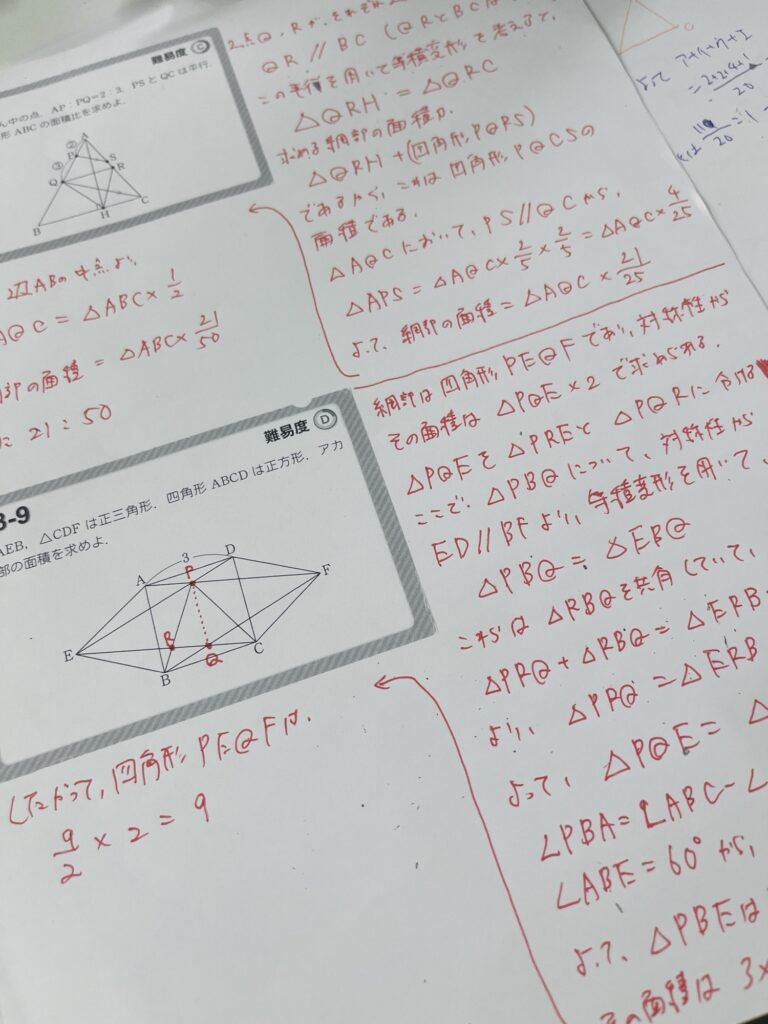 難易度 C
中の点, AP:PQ=2:3, PSとQCは平行.
形ABCの面積比を求めよ.
A
②
P
S
③
R
Q
B
H
C
2点Q, Rが, それぞれ
QR // BC (QRとBCは
この平行を用いて等積変形を考えると,
△QRH = △QRC
求める網部の面積は,
△QRH + (四角形PQRS)
であるから, これは四角形PQCSの
面積である.
△AQCにおいて, PS//QCから,
△APS = △AQC × 2/5 × 2/5 = △AQC × 4/25
よって, 網部の面積 = △AQC × 21/25
辺ABの中点より,
AQC = △ABC × 1/2
網部の面積 = △ABC × 21/50
に 21:50
難易度 D
3-9
AEB, △CDFは正三角形. 四角形ABCDは正方形. アカ
部の面積を求めよ.
3
A
D
P
F
E
R
Q
C
B
したがって, 四角形PEQFは,
9/2 × 2 = 9
網部は四角形PEQFであり, 対称性から
その面積は △PQE×2 で求められる.
△PQEを △PREと △PQRに分ける
ここで, △PBQについて, 対称性から
ED//BFより, 等積変形を用いて,
△PBQ = △EBQ
これらは △RBQを共有していて,
△PRQ + △RBQ = △ERB
より, △PRQ = △ERB
よって, △PQE = △
∠PBA = ∠ABC - ∠
∠ABE = 60° から,
よって, △PBEは
その面積は 3×
よって
20
20